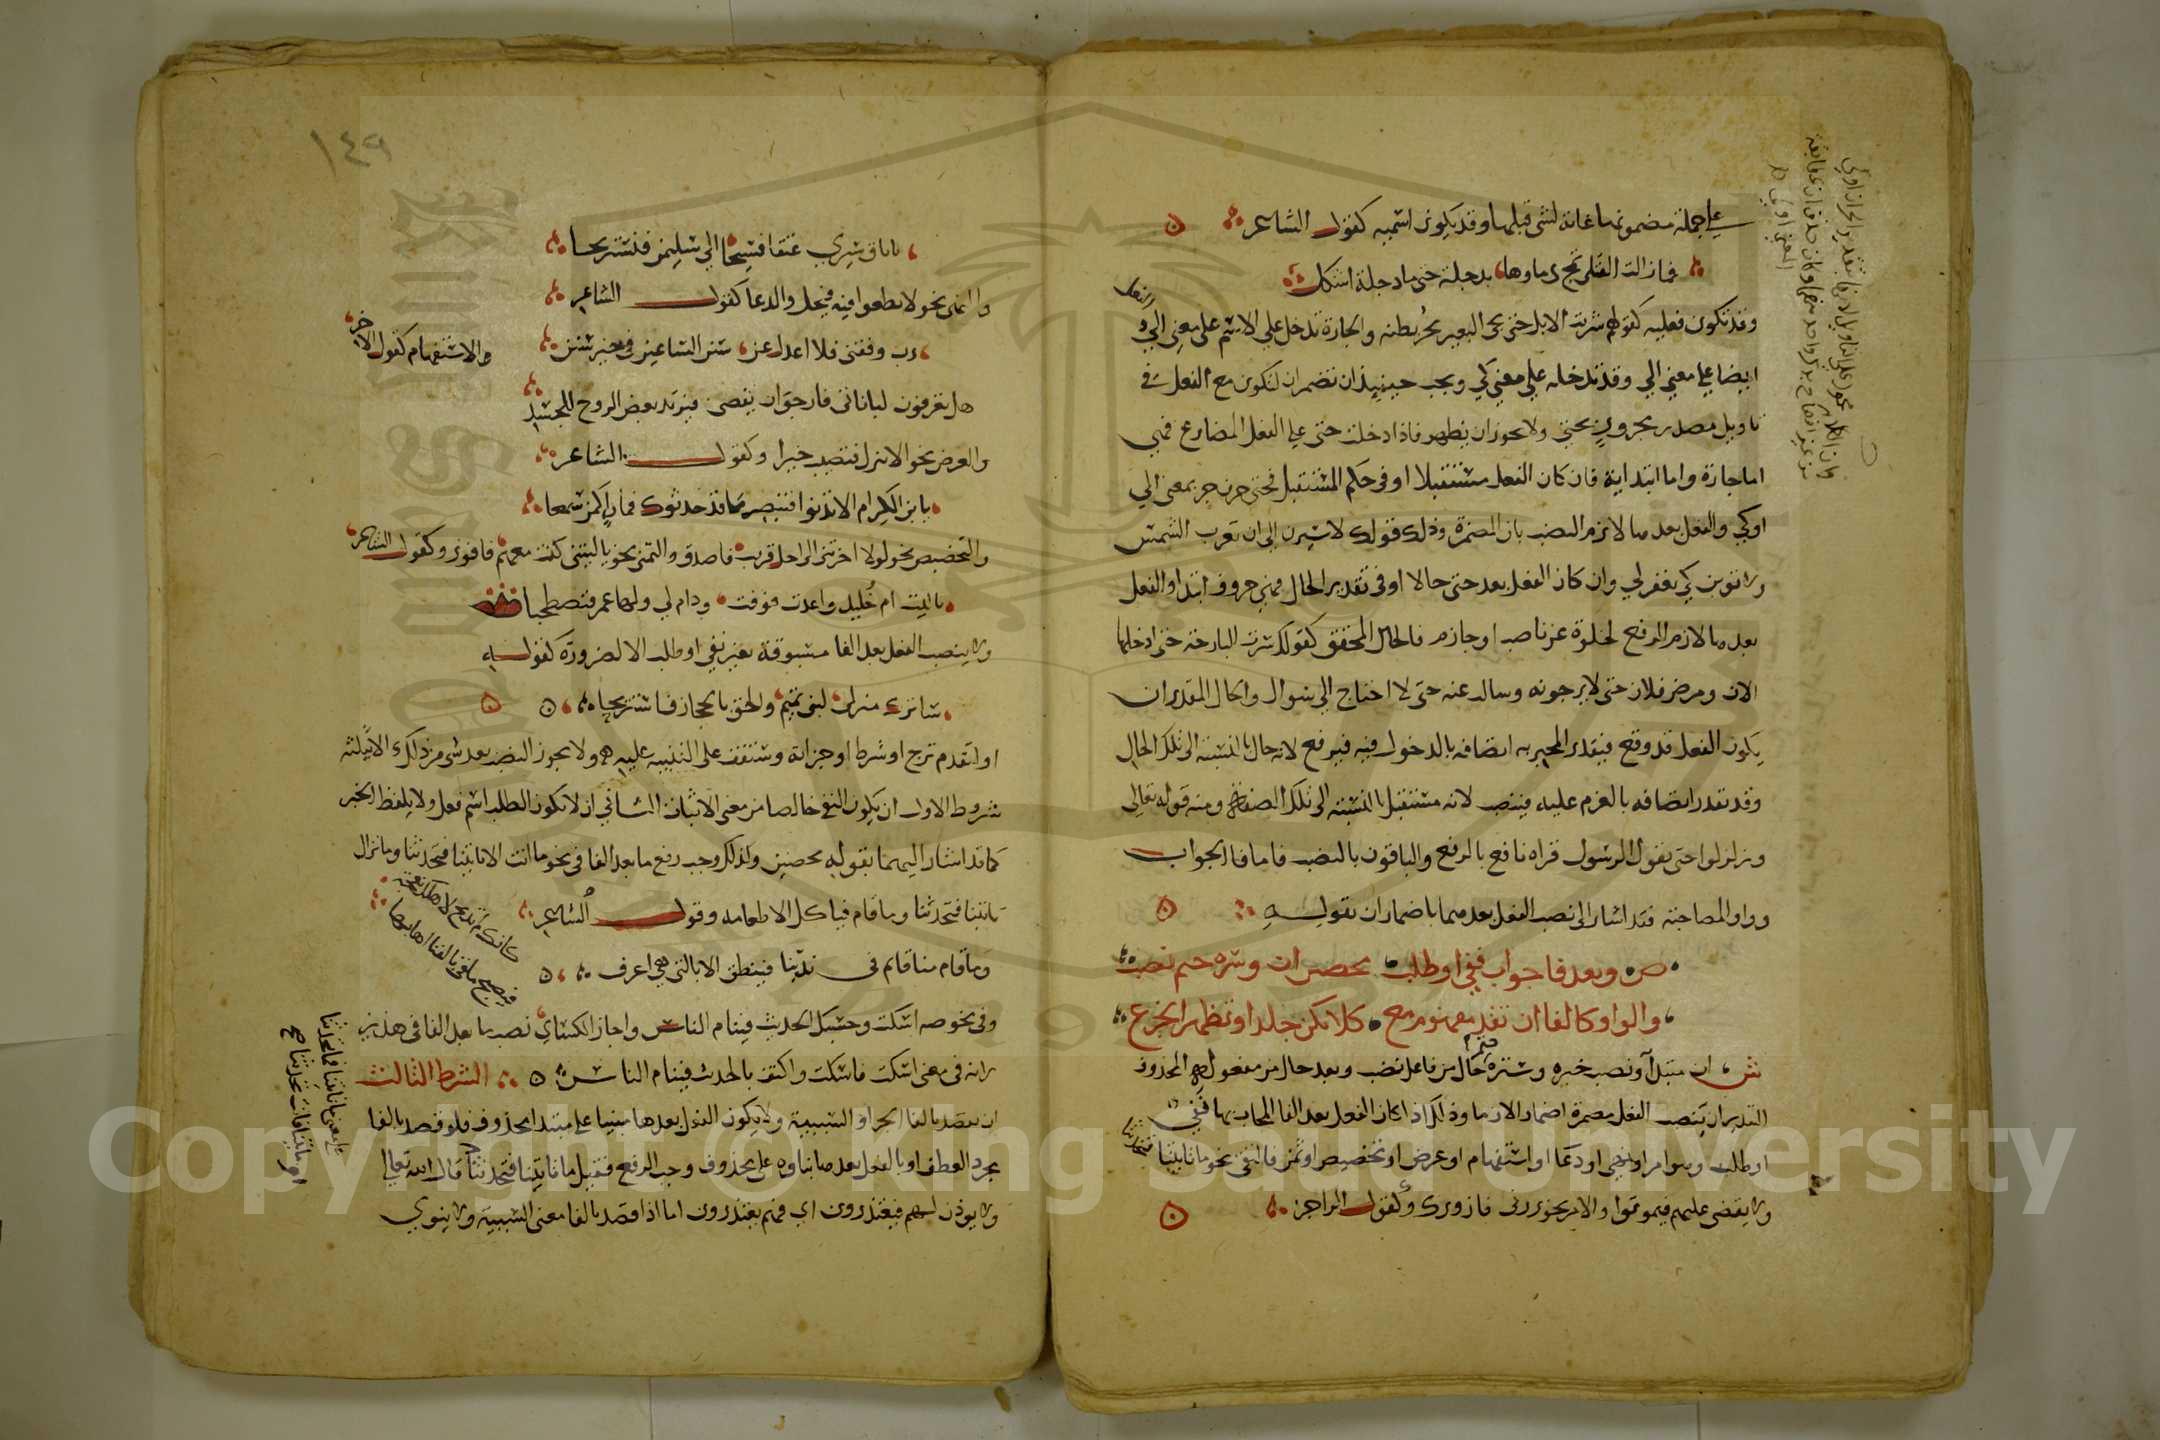 على جملة مضمونها غاية لشي قبلها وقد يكون اسميه كقول الشاعر
فما زالت القتلى تمج دماوها بدجلة حتى ما دجلة اشكل
وقد تكون فعليه كقولهم شربت الابل حتى يجي البعير يجر بطنه والجارة تدخل على الاسم على معنى الى والفعل
ايضا على معنى الى وقد تدخله على معنى كي ويجب حينيذ ان تضمر ان لتكون مع الفعل في
تاويل مصدر مجرور بحتى ولا يجوز ان يظهر فاذا دخلت حتى على الفعل المضارع فهي
اما جارة واما ابتداية فان كان الفعل مستقبلا او في حكم المستقبل فحتى حرف جر بمعنى الى
او كي والفعل بعدها لازم النصب بان المضمرة وذلك قولك لاسيرن الى ان تغرب الشمس
ولاتوبن كي يغفر لي وان كان الفعل بعد حتى حالا او في تقدير الحال فهي حروف ابتدا والفعل
بعدها لازم الرفع لخلوه عن ناصب او جازم فالحال المحقق كقولك سرت البارحة حتى ادخلها
الان ومرض فلان حتى لا يرجونه وسالت عنه حتى لا احتاج الى سوال والحال المقدر ان
يكون الفعل قد وقع فيقدر المخبر به اتصافه بالدخول فيه فيرفع لانه حال بالنسبة الى تلك الحال
وقد يقدر اتصافه بالعزم عليه فينصب لانه مستقبل بالنسبة الى تلك الحال ومنه قوله تعالى
وزلزلوا حتى يقول الرسول قراه نافع بالرفع والباقون بالنصب فاما فا الجواب
وواو المصاحبة فقد اشار الى نصب الفعل بعدهما باضمار ان بقوله
ص وبعد فا جواب نفي او طلب محضين ان وستره حتم نصب
والواو كالفا ان تفد مفهوم مع كلا تكن جلدا وتظهر الجزع
ش ان مبتدا ونصب خبره وستره حتم حال من فاعل نصب وبعد حال من مفعوله المحذوف
التقدير ان ينصب الفعل مضمرة اضمارا لازما وذلك اذا كان الفعل بعد الفا المجاب بها نفي
او طلب وهو امر او نهي او دعا او استفهام او عرض او تحضيض او تمن فالنفي نحو ما تاتينا فتحدثنا
ولا يقضى عليهم فيموتوا والامر نحو زرني فازورك وكقول الراجز
١٤٩
يا ناق سيري عنقا فسيحا الى سليمن فنستريحا
والنهي نحو لا تطغوا فيه فيحل والدعا كقول الشاعر
رب وفقني فلا اعدل عن سنن الساعين في خير سنن
والاستفهام كقول الاخر
هل تعرفون لباناتي فارجو ان تقضى فيرتد بعض الروح للجسد
والعرض نحو الا تنزل فتصيب خيرا وكقول الشاعر
يا بن الكرام الا تدنوا فتبصر ما قد حدثوك فما راء كمن سمعا
والتحضيض نحو لولا اخرتني الى اجل قريب فاصدق والتمني نحو يا ليتني كنت معهم فافوز وكقول الشاعر
يا ليت ام خليد واعدت فوفت ودام لي ولها عمر فنصطحبا
ولا ينصب الفعل بعد الفا مسبوقة بغير نفي او طلب الا لضرورة كقوله
ساترك منزلي لبني تميم والحق بالحجاز فاستريحا
او لتقدم ترج او شرط او جزاية وستقف على التنبيه عليه ولا يجوز النصب بعد شي من ذلك الا بثلثة
شروط الاول ان يكون النفي خالصا من معنى الاثبات الثاني ان لا يكون الطلب اسم فعل ولا بلفظ الخبر
كما قد اشار اليهما بقوله محضين ولذلك وجب رفع ما بعد الفا في نحو ما انت الا تاتينا فتحدثنا وما تزال
تاتينا فتحدثنا وما قام فياكل الا طعامه وقول الشاعر
وما قام منا قايم في ندينا فينطق الا بالتي هي اعرف
وفي نحو صه اسكت وحسبك الحديث فينام الناس واجاز الكساي نصب ما بعد الفا في هذين
لانه في معنى اسكت فاسكت واكتف بالحديث فينام الناس الشرط الثالث
ان يقصد بالفا الجزا والسببية ولا يكون الفعل بعدها مبنيا على مبتدا محذوف فلو قصد بالفا
مجرد العطف او بالفعل بعدها بناوه على محذوف وجب الرفع فقيل ما تاتينا فتحدثنا قال الله تعالى
ولا يوذن لهم فيعتذرون اي فهم يعتذرون اما اذا قصد بالفا معنى السببية ولا ينوي
على معنى ما تاتينا فما تحدثنا
او ما تاتينا فانت تحدثنا صح
Copyright © King Saud University